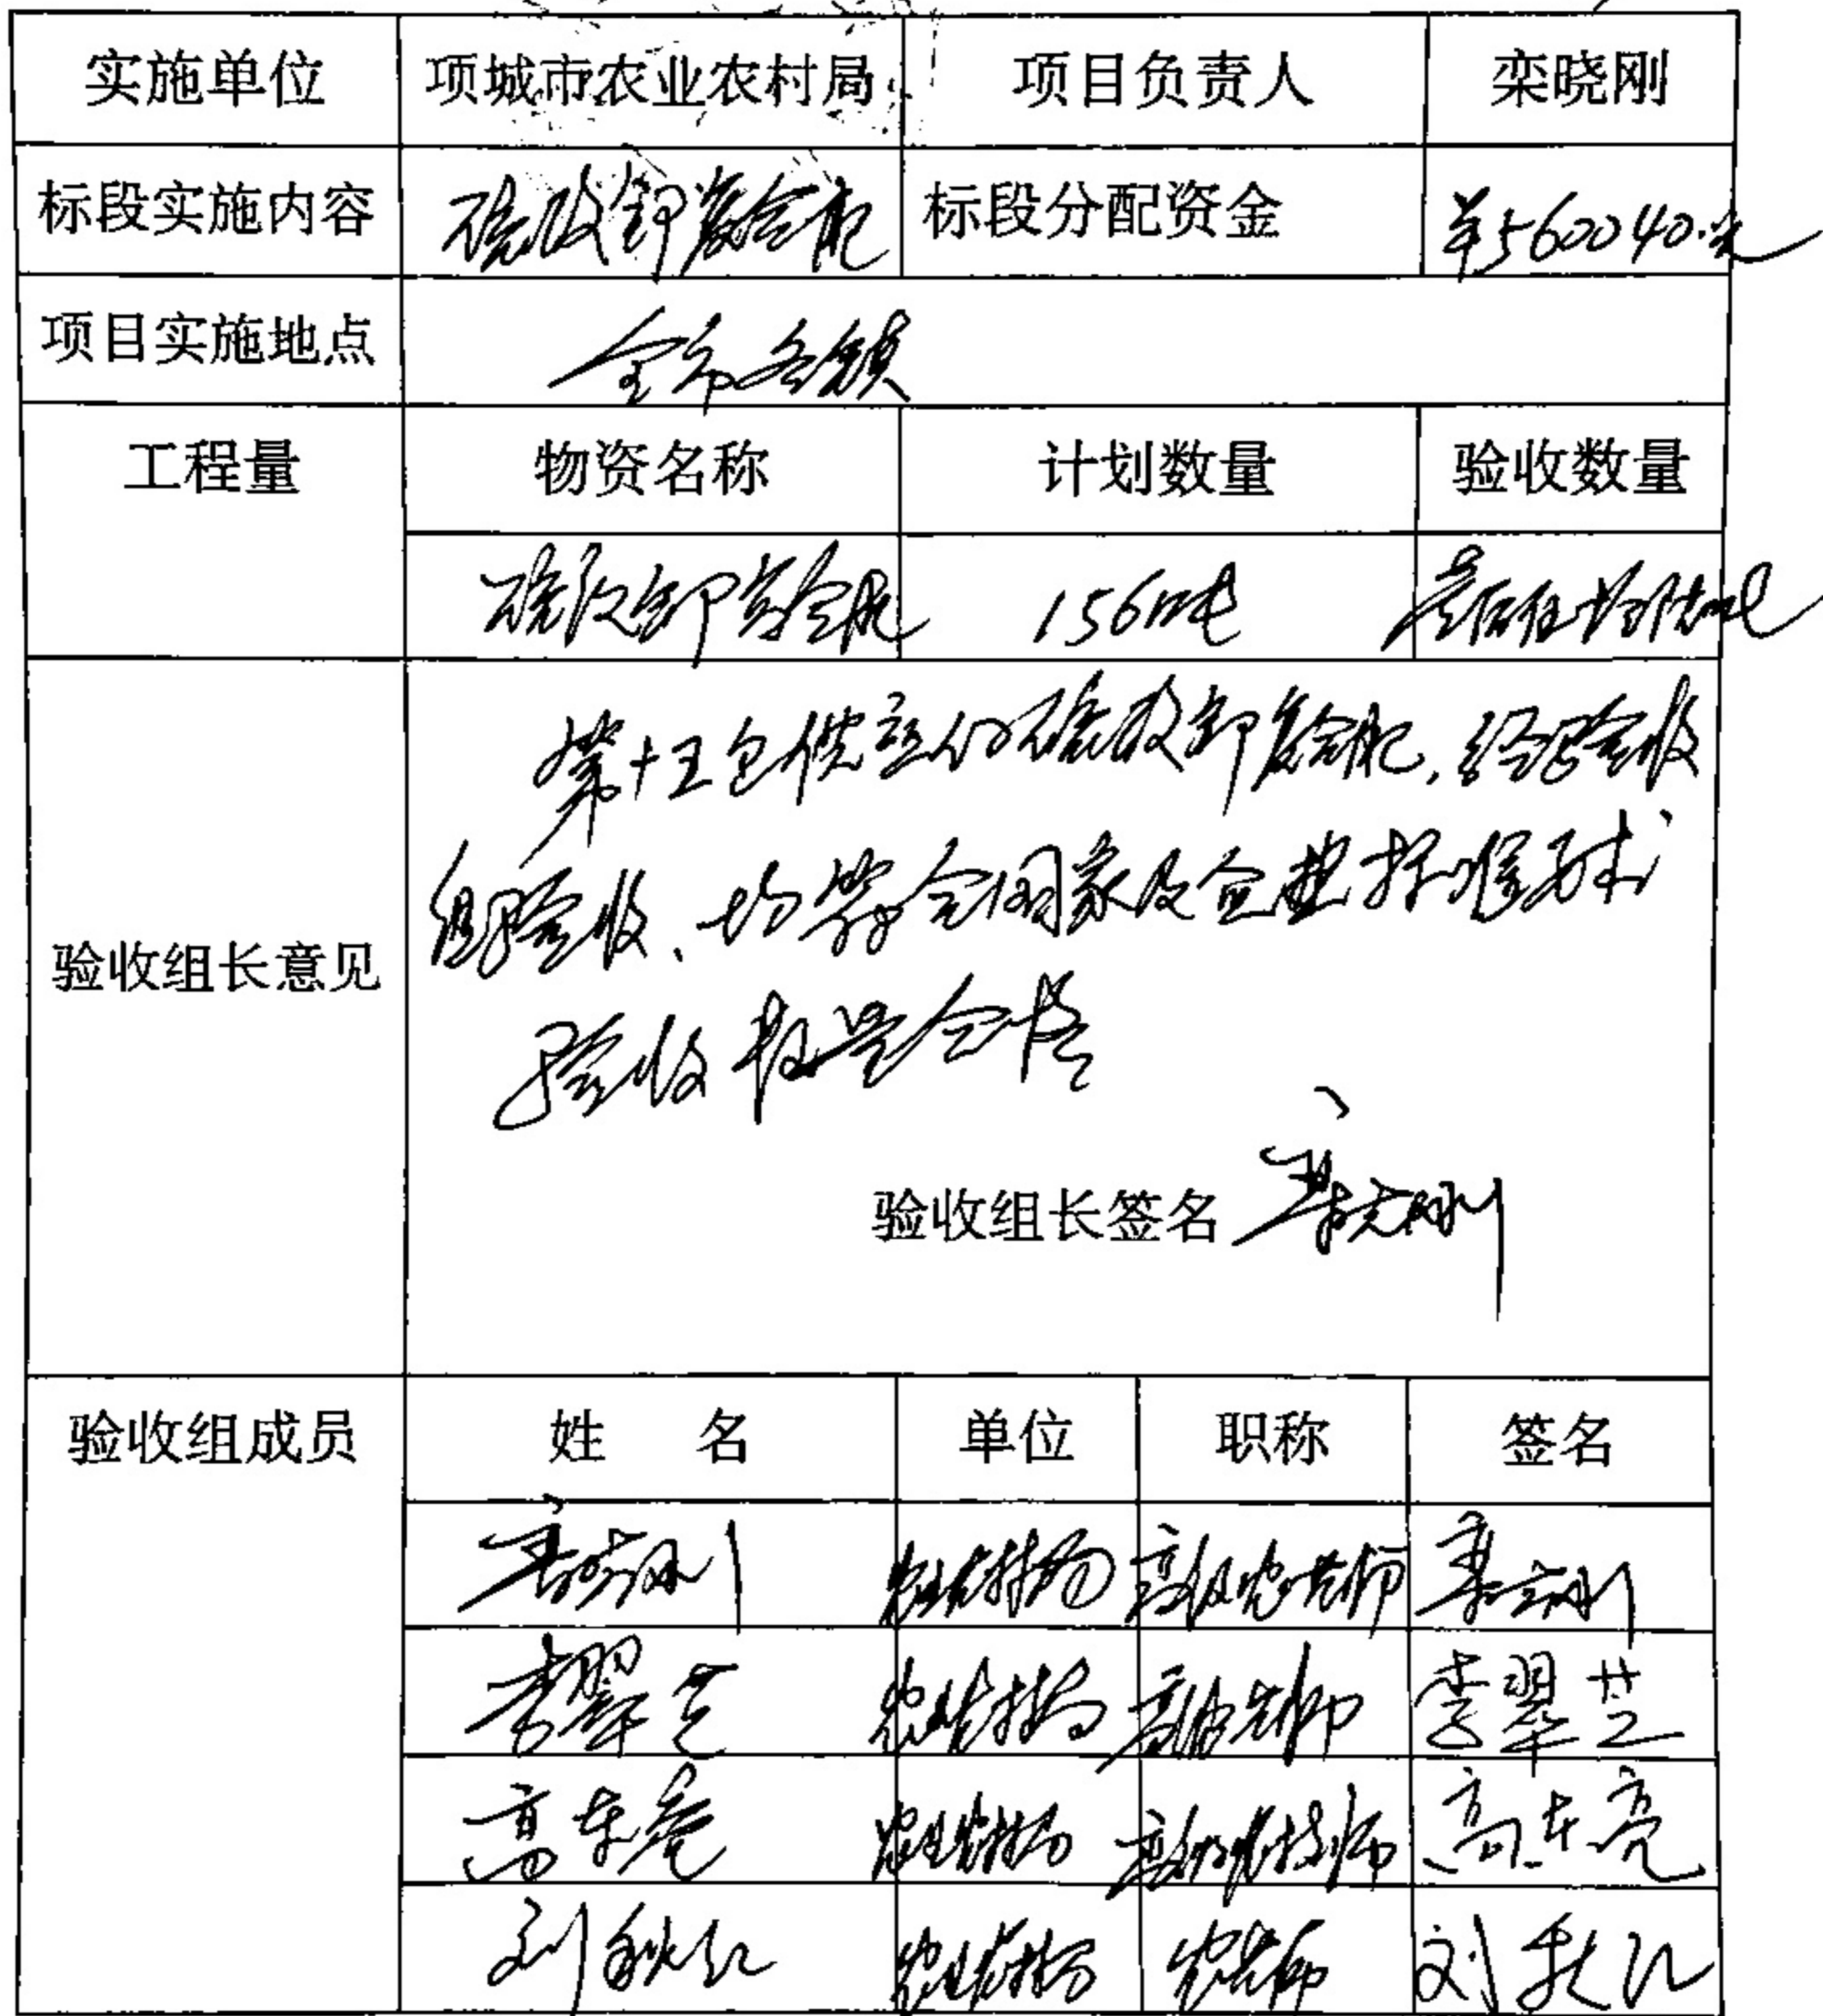 实施单位 项城市农业农村局 项目负责人 栾晓刚
标段实施内容 硫酸钾复合肥 标段分配资金 ¥560040.元
项目实施地点 全市各镇
工程量 物资名称 计划数量 验收数量
硫酸钾复合肥 156吨
第十五包供应的硫酸钾复合肥,经验收
组验收、均符合国家及企业标准要求
验收组长意见
验收数量合格
验收组长签名 栾晓刚
验收组成员 姓 名 单位 职称 签名
栾晓刚 农业农村局 高级农艺师 栾晓刚
李翠芝 农业农村局 高级农艺师 李翠芝
高东亮 农业农村局 高级农技师 高东亮
刘秋红 农业农村局 农艺师 刘秋红